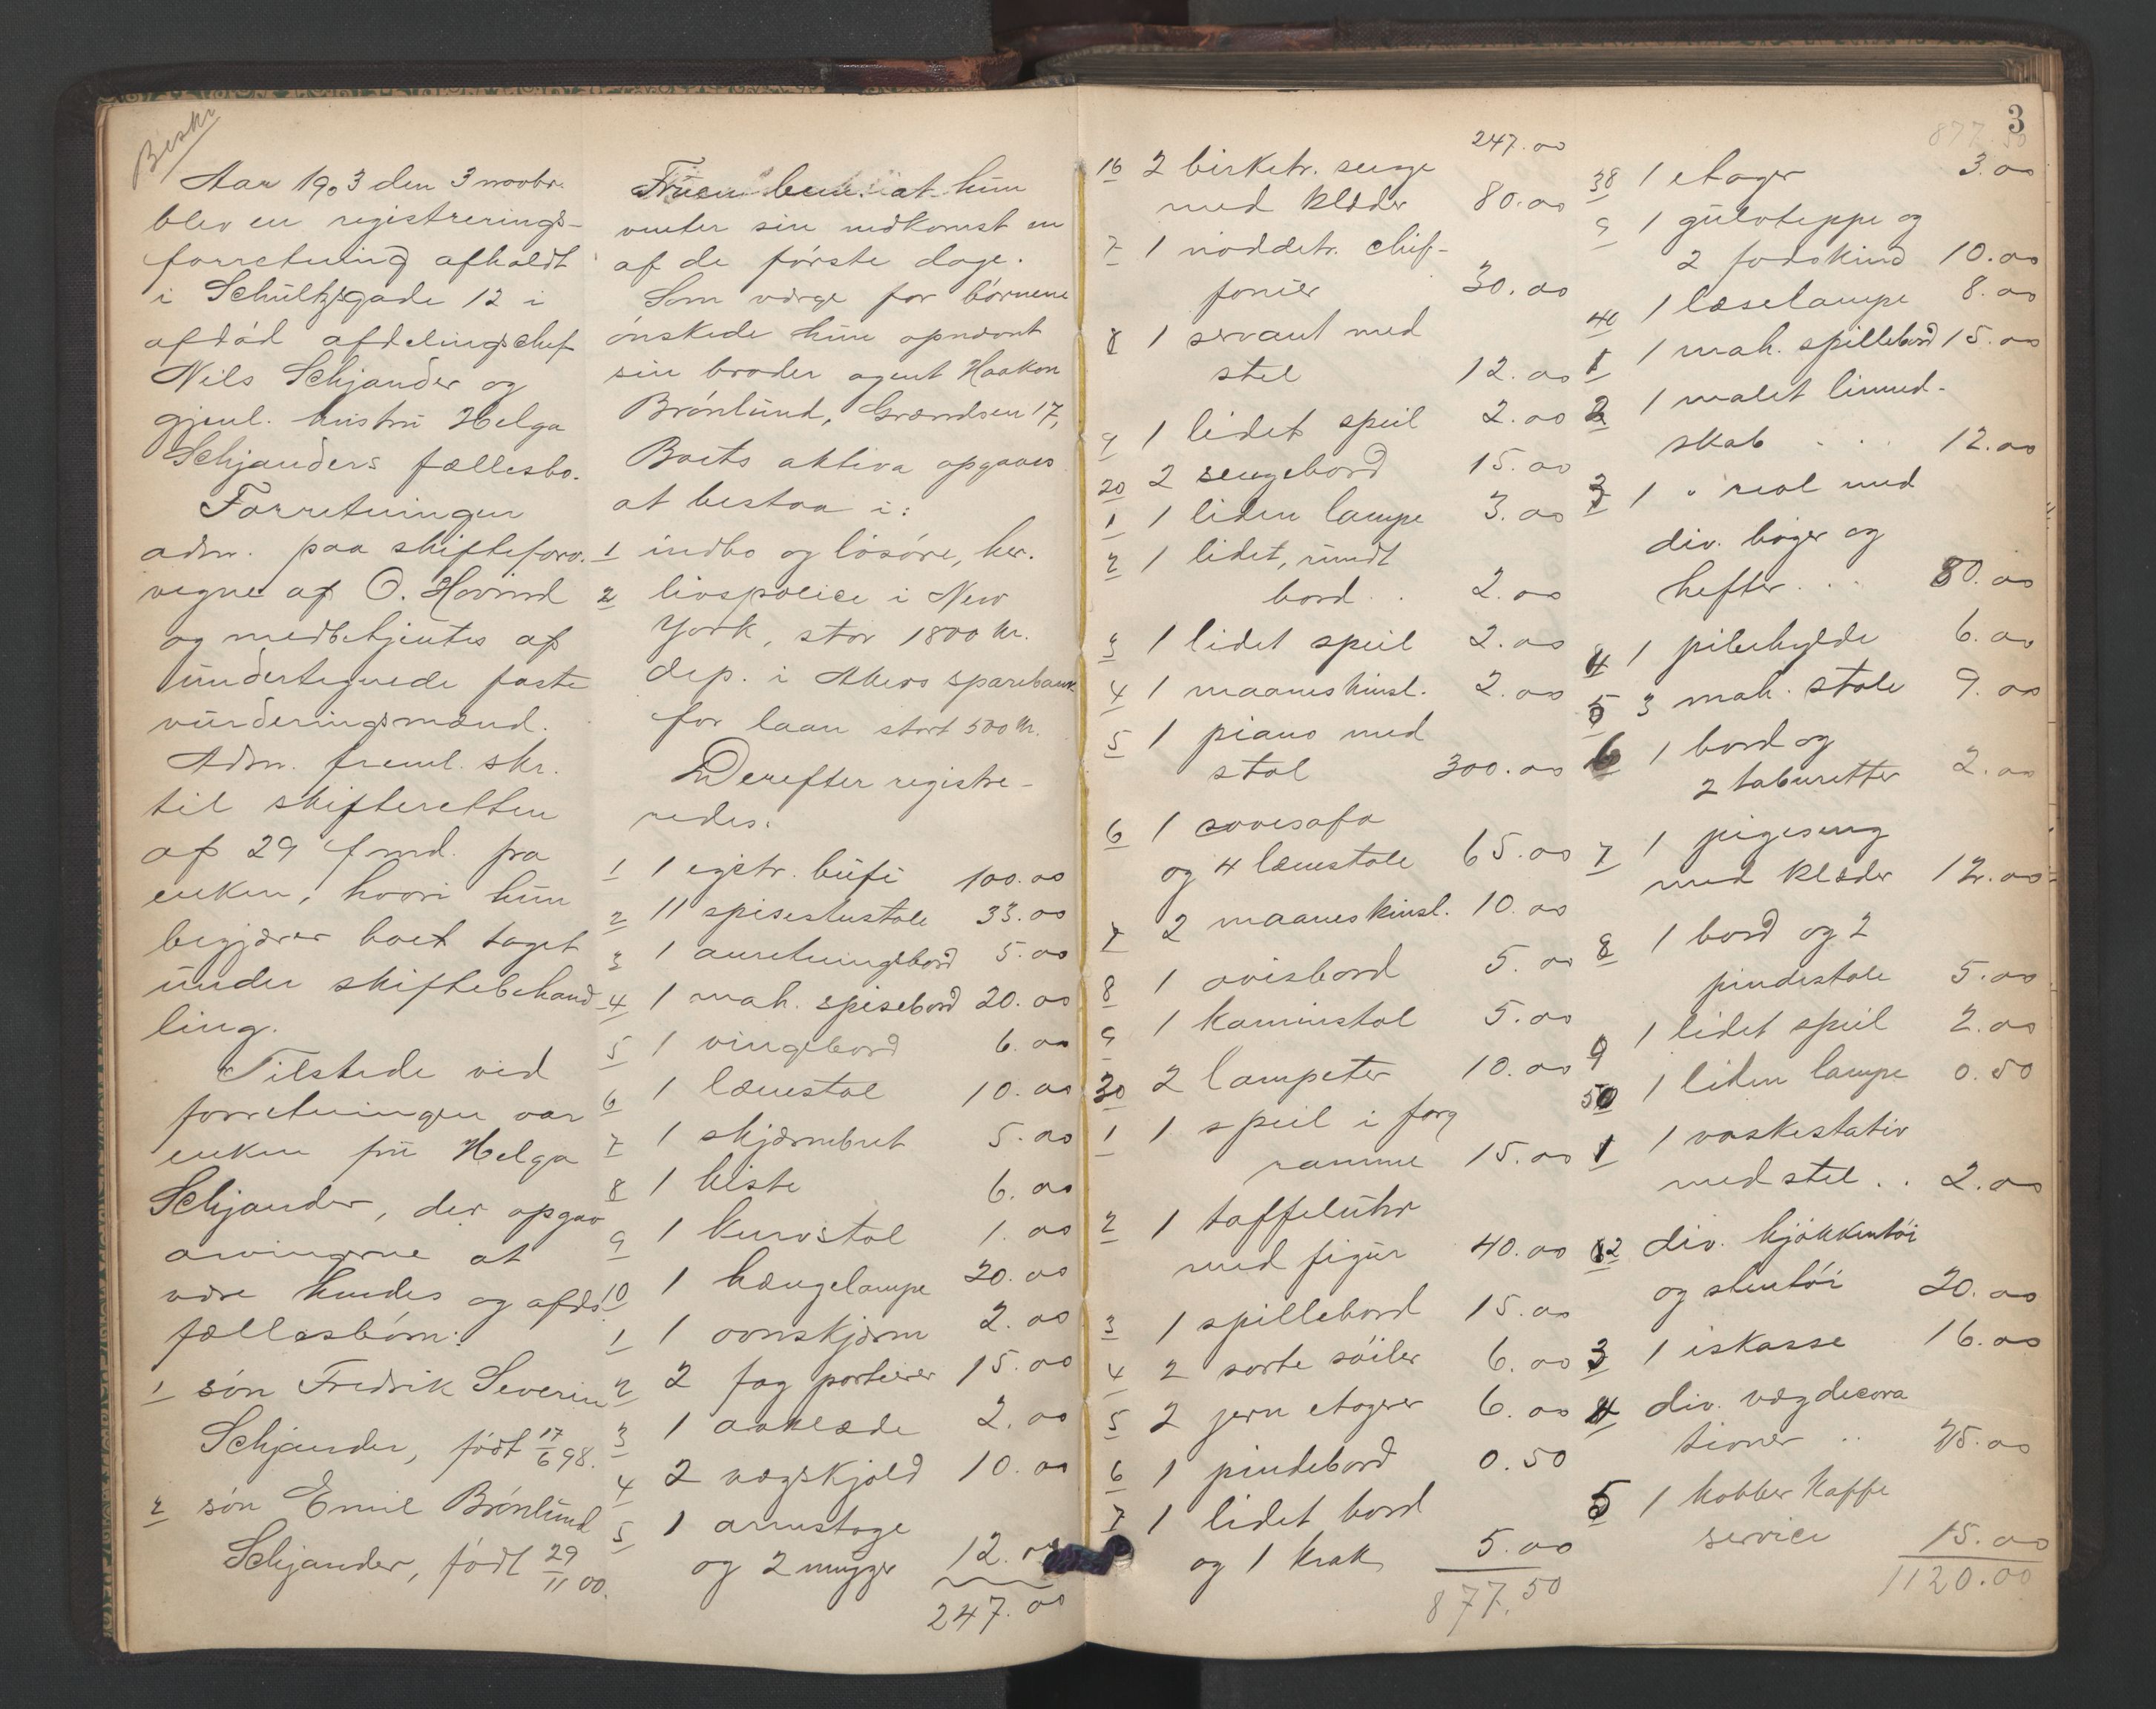 Beskr
Aar 1903 den 3 novbr.
blev en registrerings-
forretning afholdt
i Schultzsgade 12 i
afdød afdelingschef
Nils Schjander og
gjenl. hustru Helga
Schjanders fællesbo.
Forretningen
adm. paa skifteforv.
vegne af O. Hovind
og medbetjentes af
undertegnede faste
vurderingsmænd.
Adm. freml. skr.
til skifteretten
af 29 f md. fra
enken, hvori hun
begjærer boet taget
under skiftebehand
ling.
Tilstede ved
forretningen var
enken fru Helga
Schjander, der opgav
arvingerne at
være hendes og afdø.
fællesbørn:
1 søn Fredrik Severin
Schjander, født 17/6 98.
2 søn Emil Brönlund
Schjander, født 29/11 00.
Fruen bem. at hun
venter sin nedkomst en
af de første dage.
Som værge for børnene
ønskede hun opnævnt
sin broder agent Haakon
Brönlund, Grændsen 17,
Boets aktiva opgaves
at bestaa i:
1 indbo og løsøre, her.
2 livspolice i New
York, stor 1800 kr.
dep. i Akers sparebank
for laan stort 500 kr.
Derefter registre-
redes.
1 1 egetr. büfe 100.00
2 11 spisestustole 33.00
3 1 anretningsbord 5.00
4 1 mah. spisebord 20.00
5 1 vingebord 6.00
6 1 lænestol 10.00
7 1 skjærmbret 5.00
8 1 kiste 6.00
9 1 kurvstol 1.00
10 1 hængelampe 20.00
1 1 ovnskjærm 2.00
2 2 fag portierer 15.00
3 1 aaklæde 2.00
4 2 vægskjold 10.00
5 1 armstage
og 2 mugger 12.00
247.00
3
247.00
16 2 birketr. senge
med klæder 80.00
7 1 nøddetr. chif-
fonier 30.00
8 1 servant med
stel 12.00
9 1 lidet speil 2.00
20 2 sengebord 15.00
1 1 liden lampe 3.00
2 1 lidet, rundt
bord . . 2.00
3 1 lidet speil 2.00
4 1 maaneskinsl. 2.00
5 1 piano med
stol 300.00
6 1 sovesofa
og 4 lænestole 65.00
7 2 maaneskinsl. 10.00
8 1 avisbord 5.00
9 1 kaminstol 5.00
30 2 lampeter 10.00
1 1 speil i forg
ramme 15.00
2 1 taffeluhr
med figur 40.00
3 1 spillebord 15.00
4 2 sorte søiler 6.00
5 2 jern etagerer 6.00
6 1 pindebord 0.50
7 1 lidet bord
og 1 krak 5.00
877.50
877.50
38 1 etager 3.00
9 1 gulvteppe og
2 fodskind 10.00
40 1 læselampe 8.00
1 1 mah. spillebord 15.00
2 1 malet linned-
skab . . . 12.00
3 1 " reol med
div. bøger og
hefter . . . 80.00
4 1 pibehylde 6.00
5 3 mah. stole 9.00
6 1 bord og
2 taburetter 2.00
7 1 pigeseng
med klæder 12.00
8 1 bord og 2
pindestole 5.00
9 1 lidet speil 2.00
50 1 liden lampe 0.50
1 1 vaskestativ
med stel . . 2.00
2 div. kjøkkentøi
og stentøi 20.00
3 1 iskasse 16.00
4 div. vægdecora
tioner . . 25.00
5 1 kobber kaffe
service 15.00
1120.00